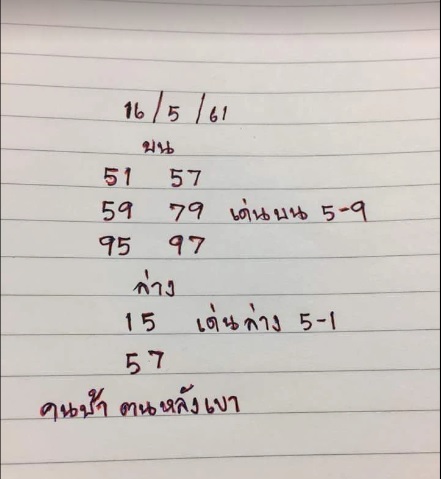 16/5/61
บน
51 57
59 79 เด่นบน 5-9
95 97
ล่าง
15 เด่นล่าง 5-1
57
คนบ้า ตนหลังเขา